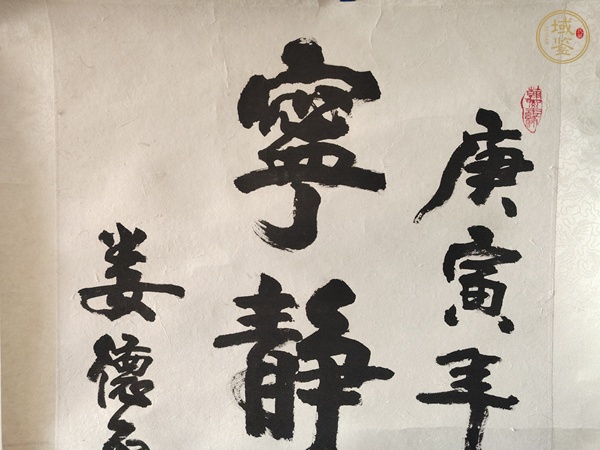 庚寅年
寧靜
姜德
域鉴